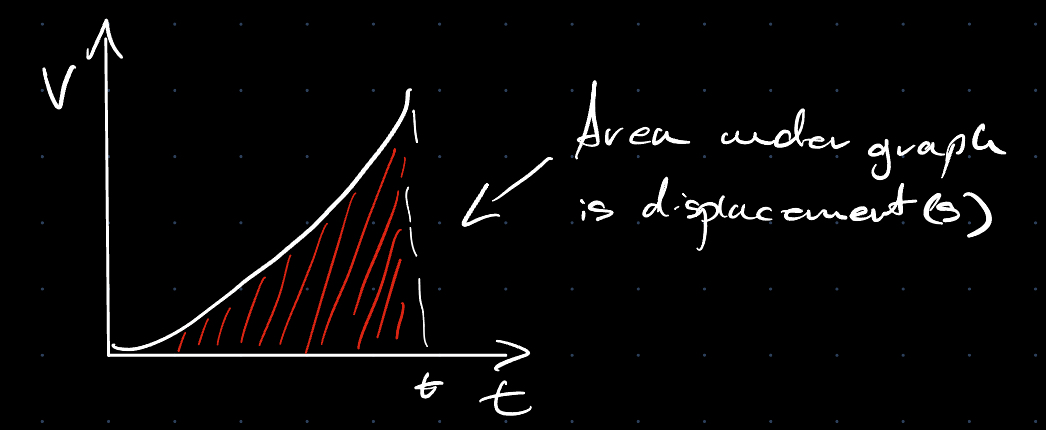 V
Area under graph
is displacement (s)
t
t